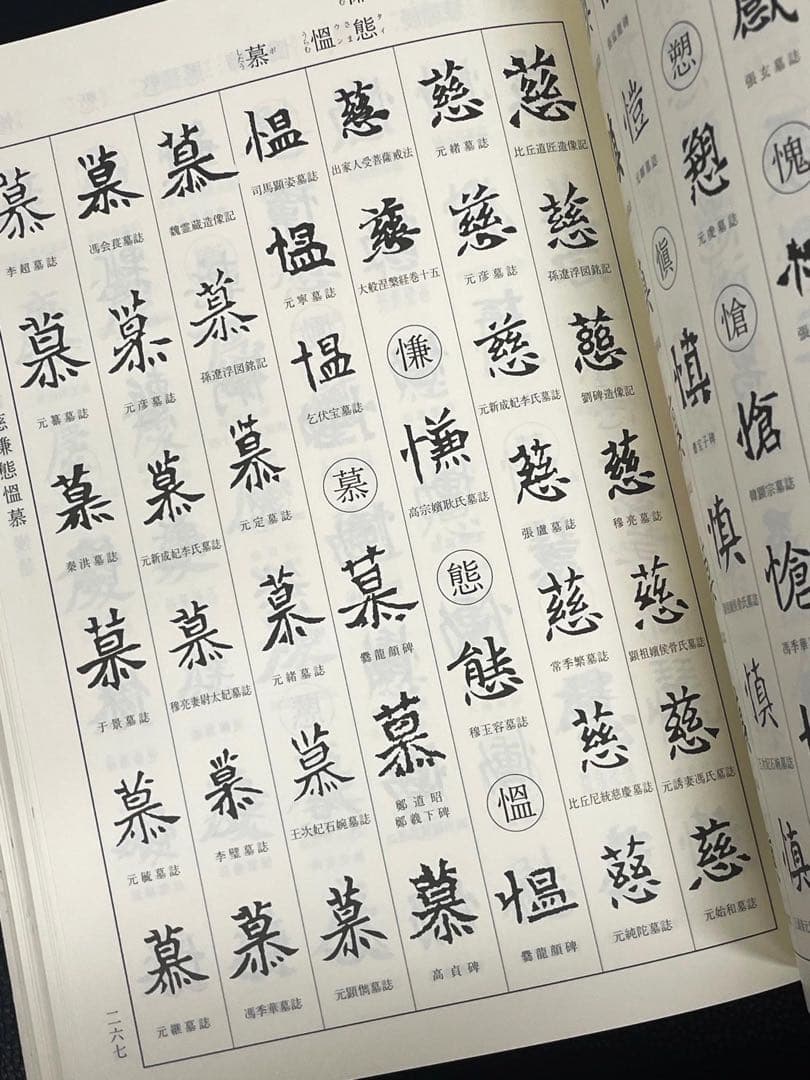 張玄墓誌
愧
愬
愬
愴
愴
韓顕宗墓誌
愴
愷
愼
慎
慎
慎
慎
態
タイ
さま
慍
ウン
うらむ
慕
ボ
したう
慈
比丘道匠造像記
慈
孫遼浮図銘記
慈
劉碑造像記
慈
穆亮墓誌
慈
顕祖嬪侯骨氏墓誌
慈
元誘妻馮氏墓誌
慈
元始和墓誌
慈
元緒墓誌
慈
元彦墓誌
慈
元新成妃李氏墓誌
慈
張盧墓誌
慈
常季繁墓誌
慈
比丘尼統慈慶墓誌
慈
元純陀墓誌
慈
出家人受菩薩戒法
慈
大般涅槃経巻十五
慊
慊
高宗嬪耿氏墓誌
態
態
穆玉容墓誌
慍
慍
爨龍顔碑
慍
司馬顕姿墓誌
慍
元寧墓誌
慍
乞伏宝墓誌
慕
慕
爨龍顔碑
慕
鄭道昭
鄭羲下碑
慕
高貞碑
慕
魏霊蔵造像記
慕
孫遼浮図銘記
慕
元定墓誌
慕
元緒墓誌
慕
王次妃石婉墓誌
慕
元顕儁墓誌
慕
馮会萇墓誌
慕
元彦墓誌
慕
元新成妃李氏墓誌
慕
穆亮妻尉太妃墓誌
慕
李璧墓誌
慕
馮季華墓誌
慕
李超墓誌
慕
元纂墓誌
慕
秦洪墓誌
慕
于景墓誌
慕
元毓墓誌
慕
元継墓誌
慈慊態慍慕
二六七